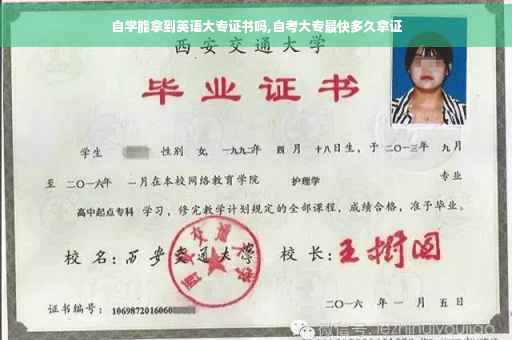 自学能拿到英语大专证书吗,自考大专最快多久拿证
西安交通大学
毕业证书
学生 性别 女, 一九九二年 四 月 十八日生, 于 二〇一三年 九 月
至 二〇一六年 一 月在本校网络教育学院 护理学 专业
高中起点专科 学习, 修完教学计划规定的全部课程, 成绩合格, 准予毕业。
校 名: 西安交通大学 校 长: 王树国
西安交通大学
证书编号: 1069872016060 二〇一六 年 一 月 五 日
微信号: jiezhihuiyoujiao